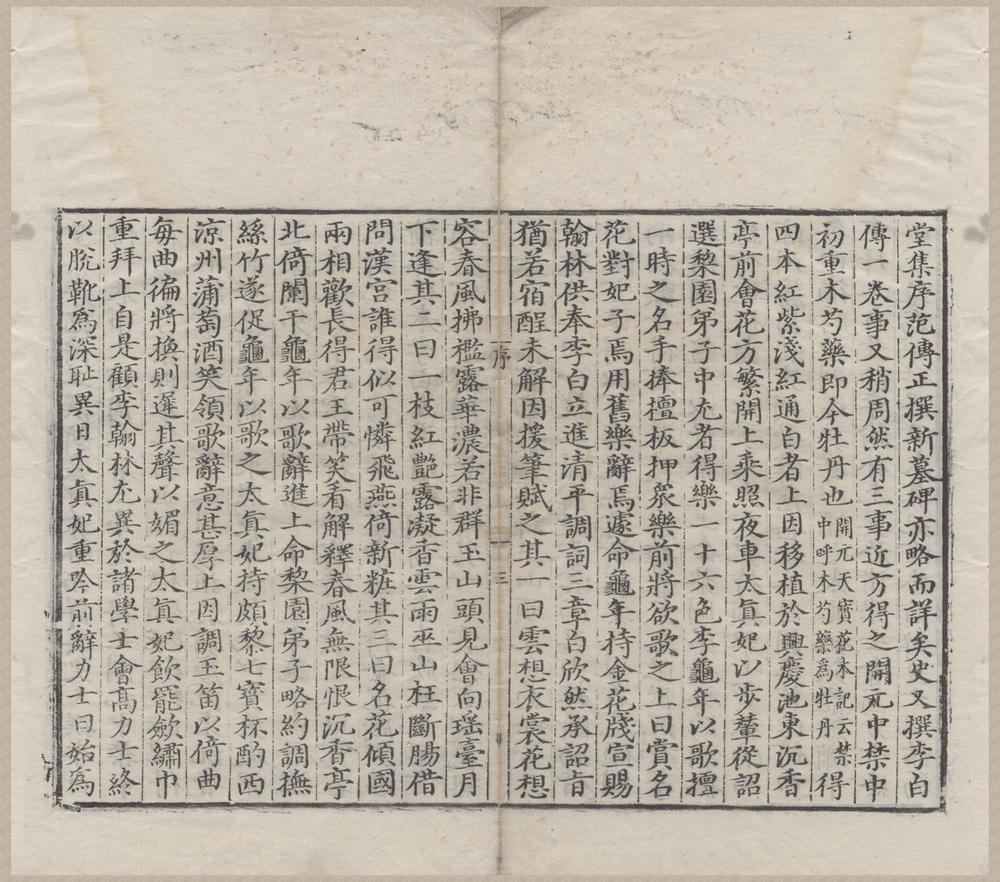 堂集序范傳正撰新墓碑亦略而詳矣史又撰李白
傳一卷事又稍周然有三事近方得之開元中禁中
初重木芍藥即今牡丹也開元天寶花木記云禁中呼木芍藥爲牡丹得
四本紅紫淺紅通白者上因移植於興慶池東沉香
亭前會花方繁開上乘照夜車太真妃以步輦從詔
選黎園弟子中尤者得樂一十六色李龜年以歌擅
一時之名手捧檀板押衆樂前將欲歌之上曰賞名
花對妃子焉用舊樂辭焉遽命龜年持金花牋宣賜
翰林供奉李白立進清平調詞三章白欣然承詔旨
猶若宿酲未解因援筆賦之其一曰雲想衣裳花想
序
三
容春風拂檻露華濃若非群玉山頭見會向瑶臺月
下逢其二曰一枝紅艷露凝香雲雨巫山枉斷腸借
問漢宮誰得似可憐飛燕倚新粧其三曰名花傾國
兩相歡長得君王帶笑看解釋春風無限恨沉香亭
北倚闌干龜年以歌辭進上命黎園弟子略約調撫
絲竹遂促龜年以歌之太真妃持頗黎七寶杯酌西
涼州蒲萄酒笑領歌辭意甚厚上因調玉笛以倚曲
每曲徧將換則遲其聲以媚之太真妃飲罷歛繡巾
重拜上自是顧李翰林尤異於諸學士會高力士終
以脫靴爲深耻異日太真妃重吟前辭力士曰始爲